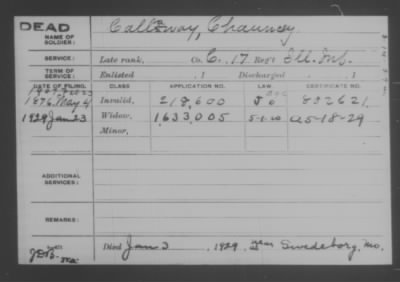 DEAD
NAME OF SOLDIER:
Calloway, Chauncey.
SERVICE:
Late rank, Co. C, 17 Reg't Ill. Inf.
TERM OF SERVICE:
Enlisted , 1 Discharged , 1
DATE OF FILING. CLASS APPLICATION NO. LAW CERTIFICATE NO.
1876 May 4 Invalid, 218,600 832621
1929 Jan 23 Widow, 1,633,005 5-1-20 a5-18-29
Minor,
ADDITIONAL SERVICES:
REMARKS:
Died Jan 3, 1929, near Swedeborg, Mo.